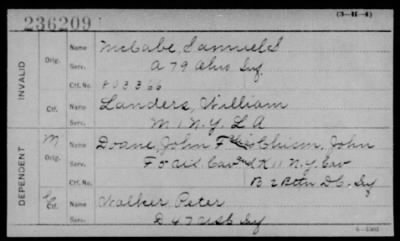 (3-H-4)
236209
INVALID
Orig. Name McCabe, Samuel S
Serv. A 79 Ohio Inf.
Ctf. No.
Ctf. Name Landers, William
Serv. M 1 N.Y. L A
DEPENDENT
Orig. Name Doane, John F Chism, John
Serv. F Cav and K 11 N.Y. Cav
Ctf. No. B 2 Battn D.C. Inf
Ctf. Name Walker, Peter
Serv. D 47 Inf